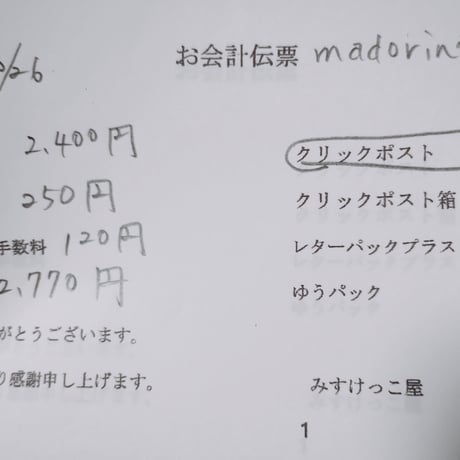 /26
お会計伝票 madorin
2,400円
クリックポスト
250円
クリックポスト箱
手数料 120円
レターパックプラス
2,770円
ゆうパック
がとうございます。
り感謝申し上げます。
みすけっこ屋
1